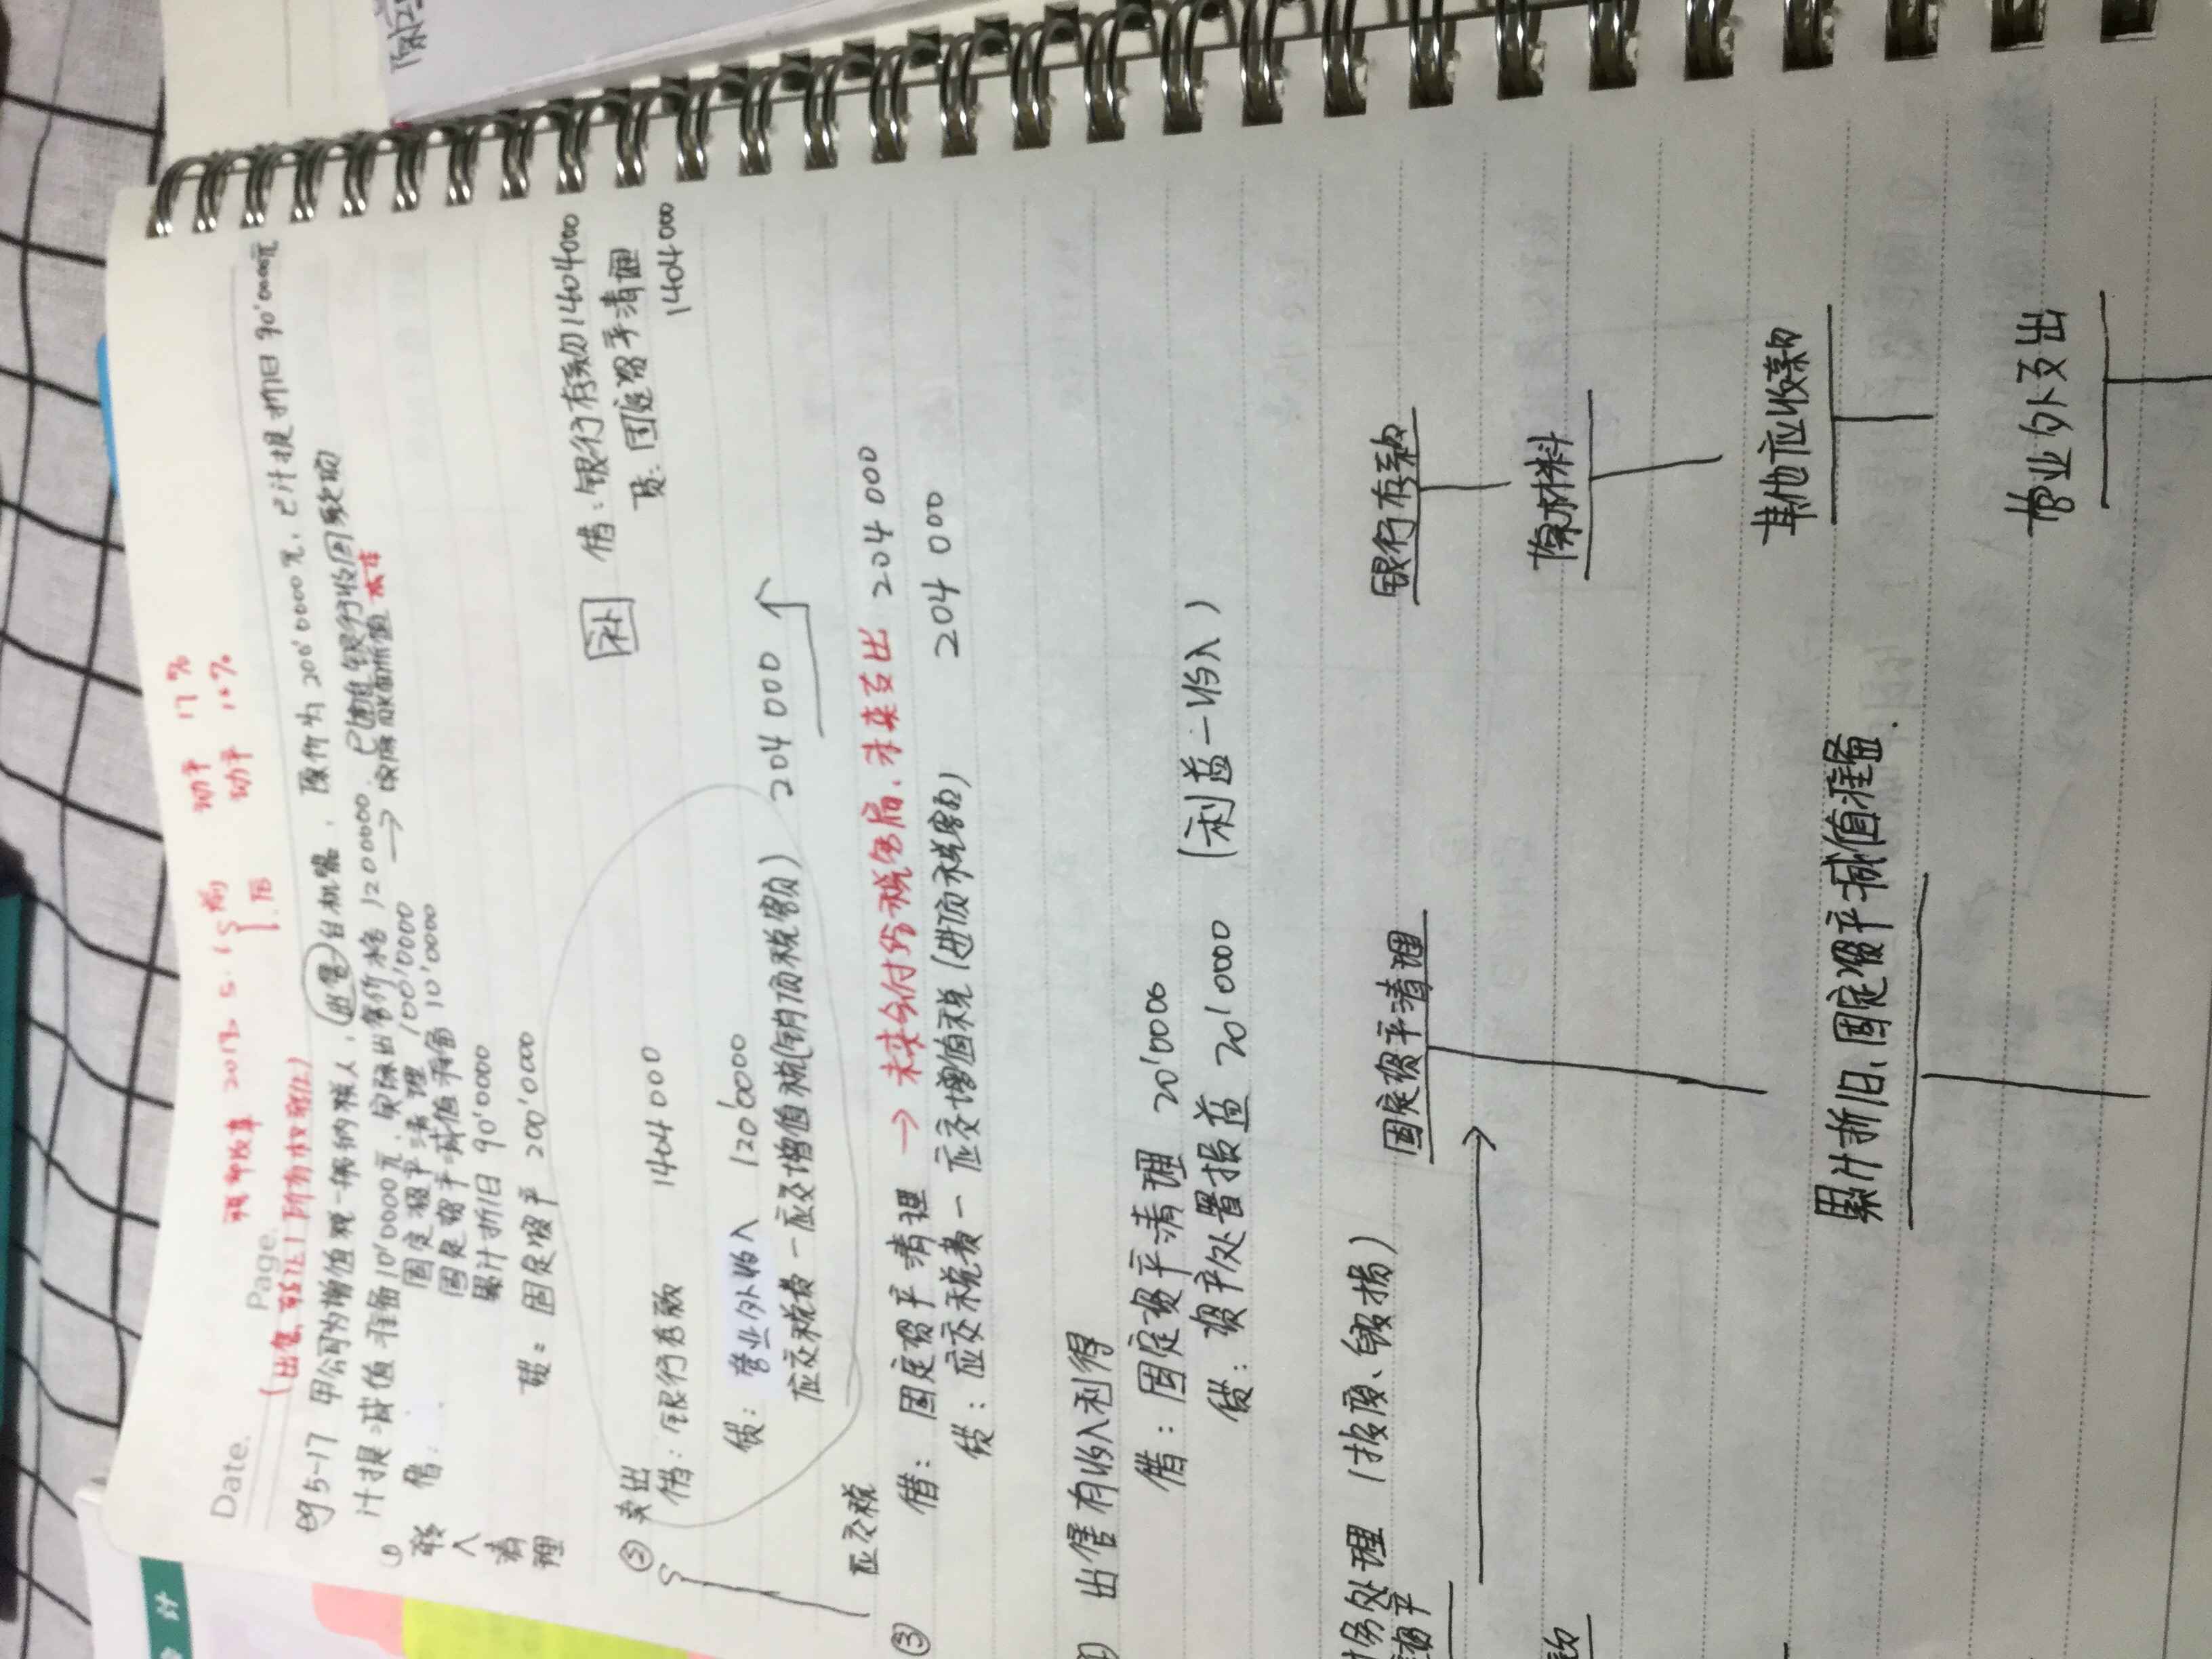 Date.
Page.
2017. 5.1 前 动产 17%
后 动产 16%
(出售、转让所有权转让)
例5-17 甲公司为增值税一般纳税人，出售一台机器，原价为200'0000元，已计提折旧90'0000元
计提减值准备10'0000元，实际出售价格1200000，已通过银行收回款项
① 转入清理
借：固定资产清理 100'0000
固定资产减值准备 10'0000
累计折旧 90'0000
贷：固定资产 200'0000
→ 账面价值
② 卖出
借：银行存款 1404000
贷：营业外收入 120'0000
应交税费—应交增值税(销项税额) 204000
补 借：银行存款1404000
贷：固定资产清理
1404000
应交税
③ 借：固定资产清理 → 未来会付给税务局，未来支出 204000
贷：应交税费—应交增值税(进项税额) 204000
出售有收入利得
借：固定资产清理 20'0000
贷：资产处置损益 20'0000 (利益—收入)
务处理 (报废、毁损)
资产
固定资产清理
银行存款
原材料
累计折旧、固定资产减值准备.
其他应收款
营业外支出